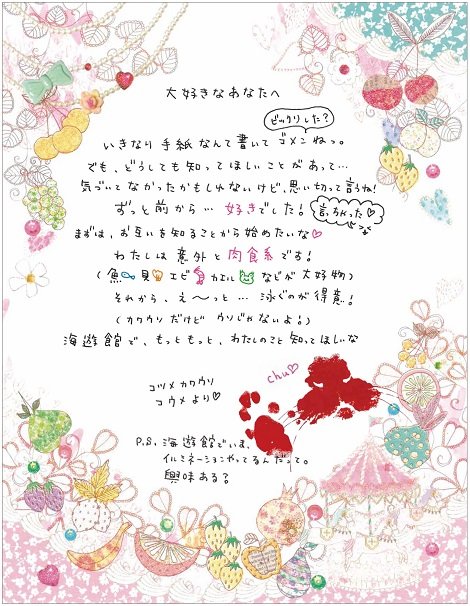 大好きなあなたへ
ビックリした?
いきなり手紙なんて書いてゴメンねっ。
でも、どうしても知ってほしいことがあって…
気づいてなかったかもしれないけど、思い切って言うね!
ずっと前から… 好きでした! 言っちゃった♡
まずは、お互いを知ることから始めたいな♡
わたしは意外と肉食系です!
(魚 貝 エビ カエル などが大好物)
それから、え〜っと… 泳ぐのが得意!
(カワウソだけどウソじゃないよ!)
海遊館で、もっともっと、わたしのこと知ってほしいな
chu♡
コツメカワウソ
コウメより♡
P.S. 海遊館でいま、
イルミネーションやってるんだって。
興味ある?